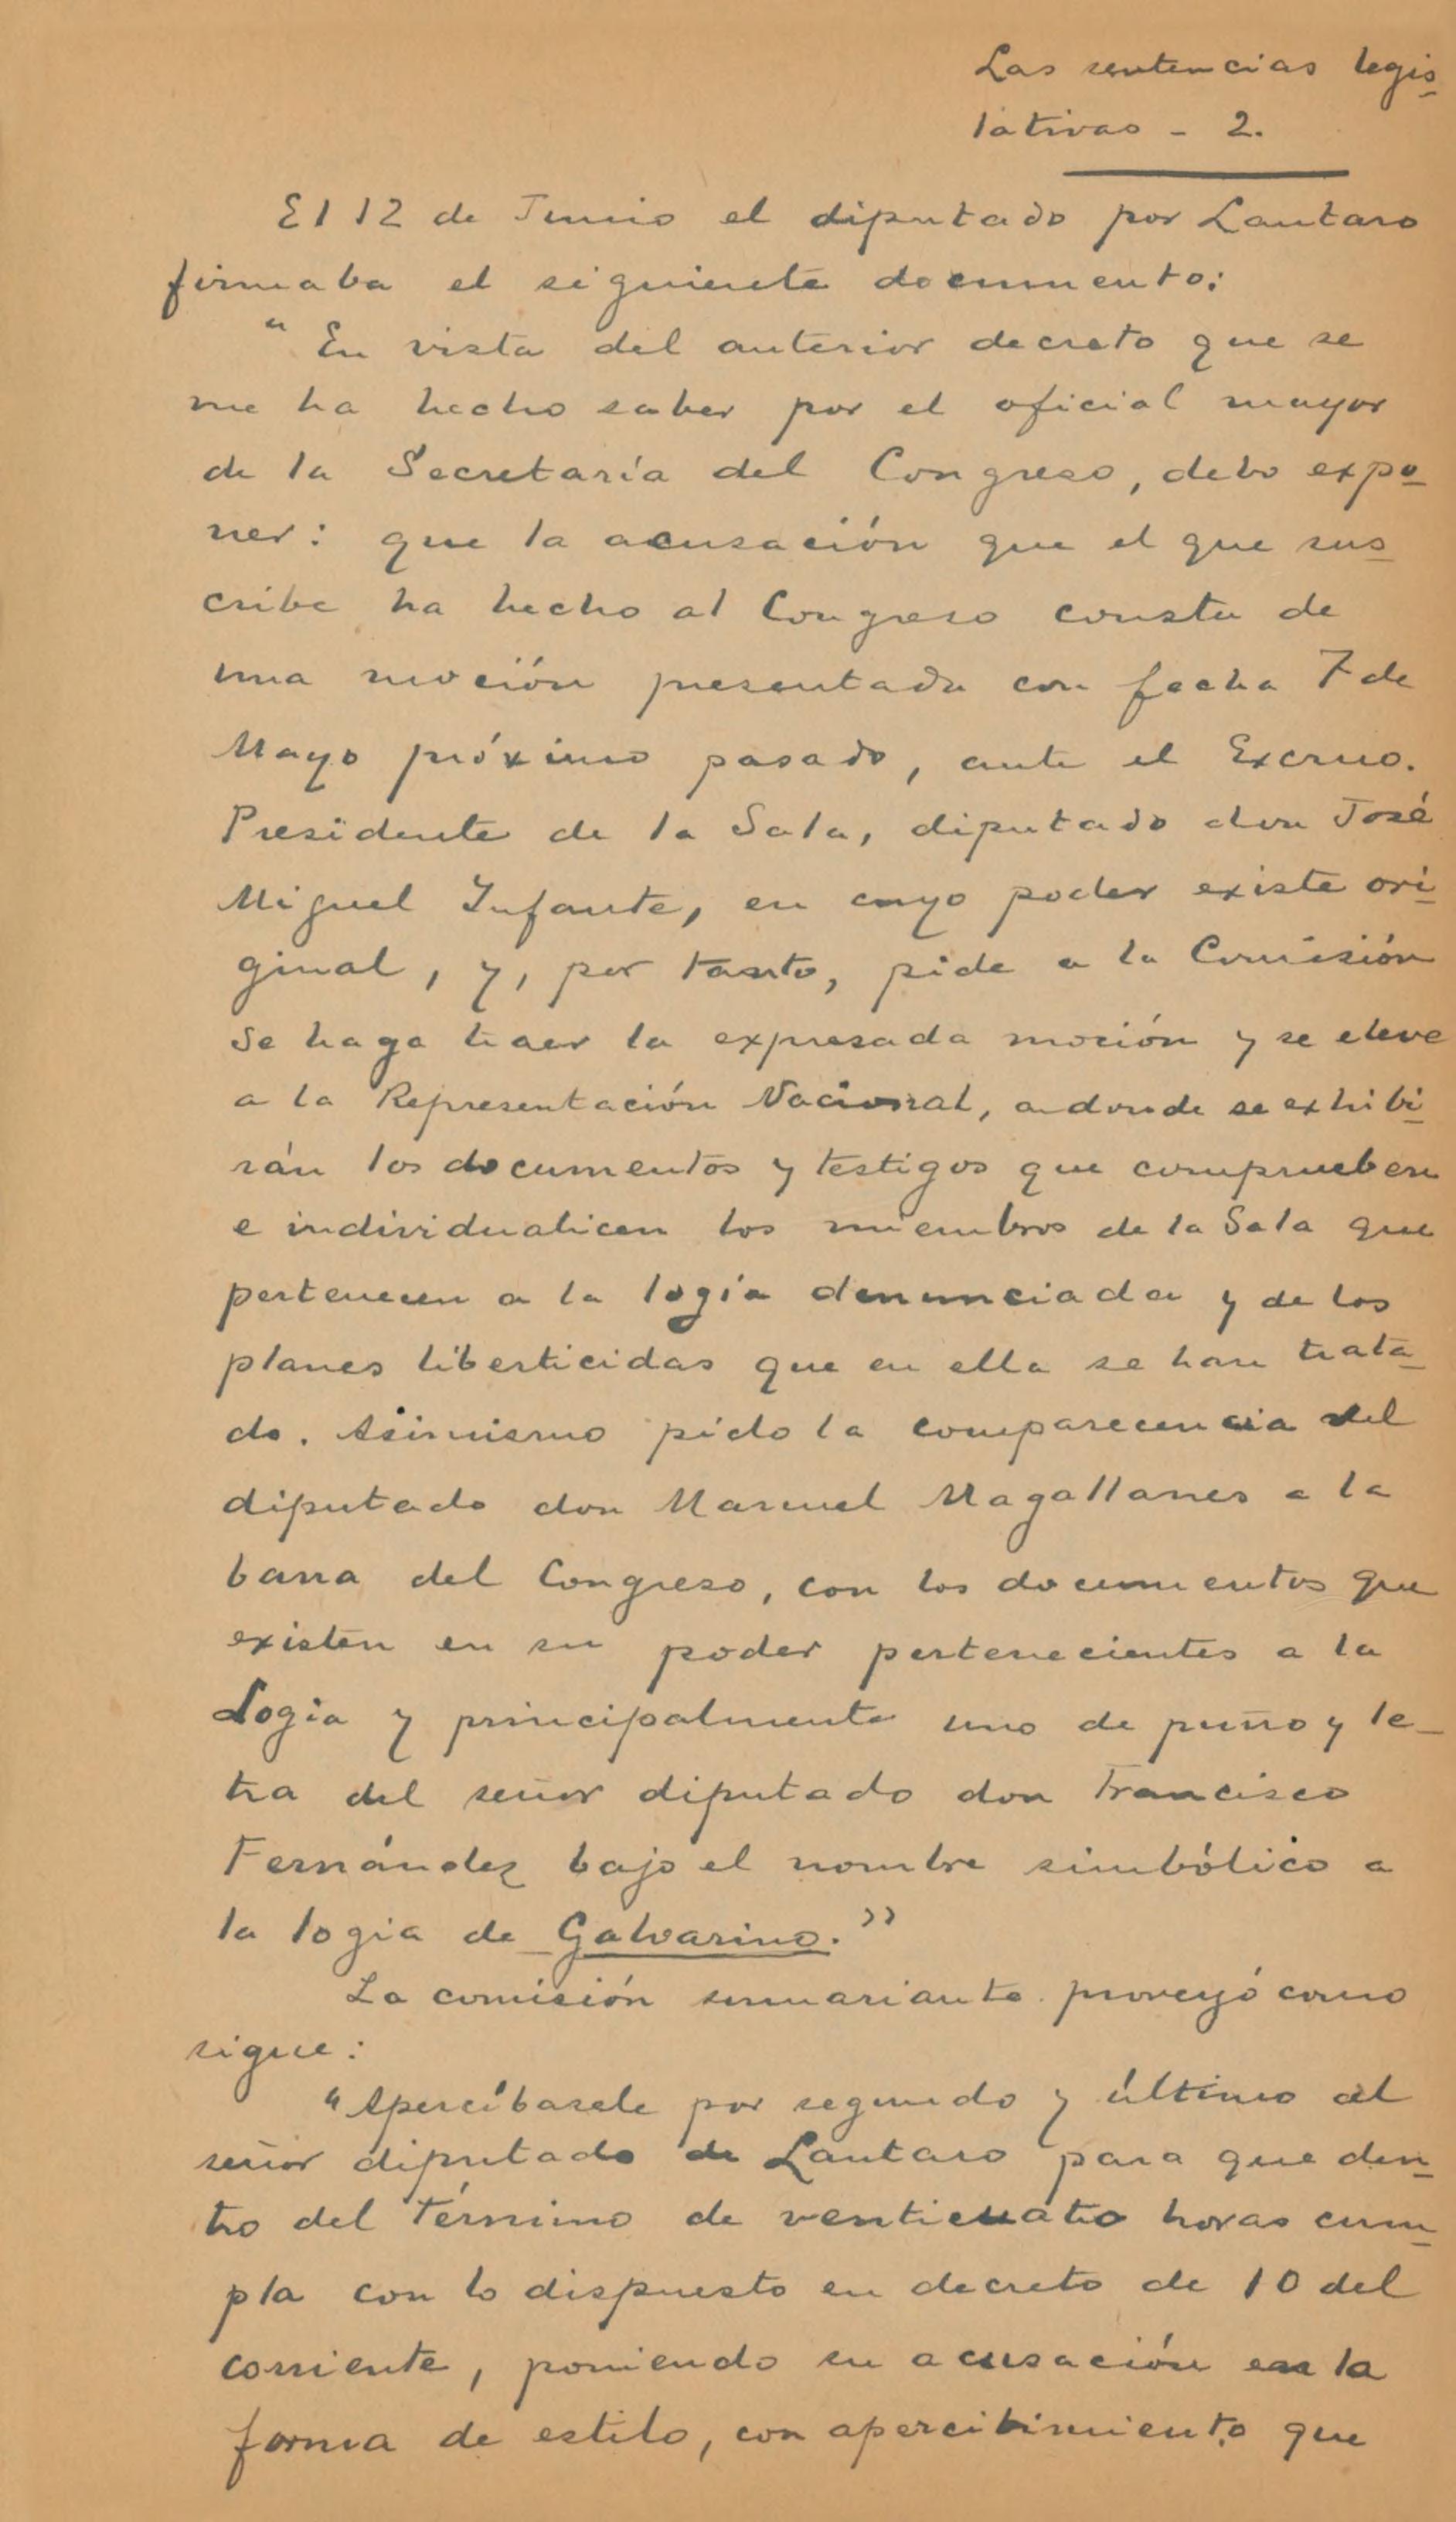 Las sentencias legis-
lativas - 2.
El 12 de Junio el diputado por Lautaro
firmaba el siguiente documento:
"En vista del anterior decreto que se
me ha hecho saber por el oficial mayor
de la Secretaría del Congreso, debo expo-
ner: que la acusación que el que sus-
cribe ha hecho al Congreso consta de
una moción presentada con fecha 7 de
Mayo próximo pasado, ante el Excmo.
Presidente de la Sala, diputado don José
Miguel Infante, en cuyo poder existe ori-
ginal, y, por tanto, pide a la Comisión
se haga traer la expresada moción y se eleve
a la Representación Nacional, adonde se exhibi-
rán los documentos y testigos que comprueben
e individualicen los miembros de la Sala que
pertenecen a la logia denunciada y de los
planes liberticidas que en ella se han trata-
do. Asimismo pido la comparecencia del
diputado don Manuel Magallanes a la
barra del Congreso, con los documentos que
existen en su poder pertenecientes a la
Logia y principalmente uno de puño y le-
tra del señor diputado don Francisco
Fernández bajo el nombre simbólico a
la logia de Galvarino."
La comisión sumariante proveyó como
sigue:
"Apercíbasele por segundo y último al
señor diputado de Lautaro para que den-
tro del término de venticuatro horas cum-
pla con lo dispuesto en decreto de 10 del
corriente, poniendo su acusación en la
forma de estilo, con apercibimiento que